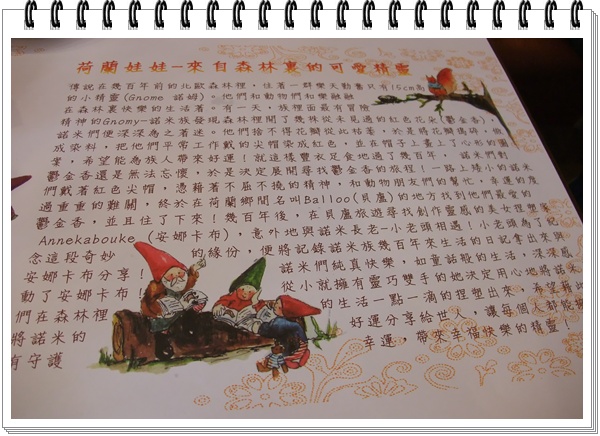 荷蘭娃娃-來自森林裏的可愛精靈
傳說在幾百年前的北歐森林裡，住著一群樂天勤奮只有15cm高
的小精靈(Gnome 諾姆)。他們和動物們和樂融融
在森林裏快樂的生活著。有一天，族裡面最有冒險
精神的Gnomy-諾米族發現森林裡開了幾株從未見過的紅色花朵(鬱金香)，
諾米們便深深為之著迷。他們捨不得花瓣從此枯萎，於是將花瓣搗碎，做
成染料，把他們平常工作戴的尖帽染成紅色，並在帽子上畫上了心形的圖
案，希望能為族人帶來好運！就這樣豐衣足食地過了幾百年， 諾米們對
鬱金香還是無法忘懷，於是決定展開尋找鬱金香的旅程！一路上矮小的諾米
們戴著紅色尖帽，憑藉著不屈不撓的精神，和動物朋友們的幫忙，幸運的度
過重重的難關，終於在荷蘭鄉間名叫Balloo(貝盧)的地方找到他們最愛的
鬱金香，並且住了下來！幾百年後，在貝盧旅遊尋找創作靈感的美女捏塑家
Annekabouke (安娜卡布)，意外地與諾米長老-小老頭相遇！小老頭為了紀
念這段奇妙 的緣份，便將記錄諾米族幾百年來生活的日記拿出來與
安娜卡布分享！ 諾米們純真快樂，如童話般的生活，深深感
動了安娜卡布 從小就擁有靈巧雙手的她決定用心地將諾米
們在森林裡 的生活一點一滴的捏塑出來，希望藉此
將諾米的 好運分享給世人，讓每個人都能擁
有守護 幸運，帶來幸福快樂的精靈！